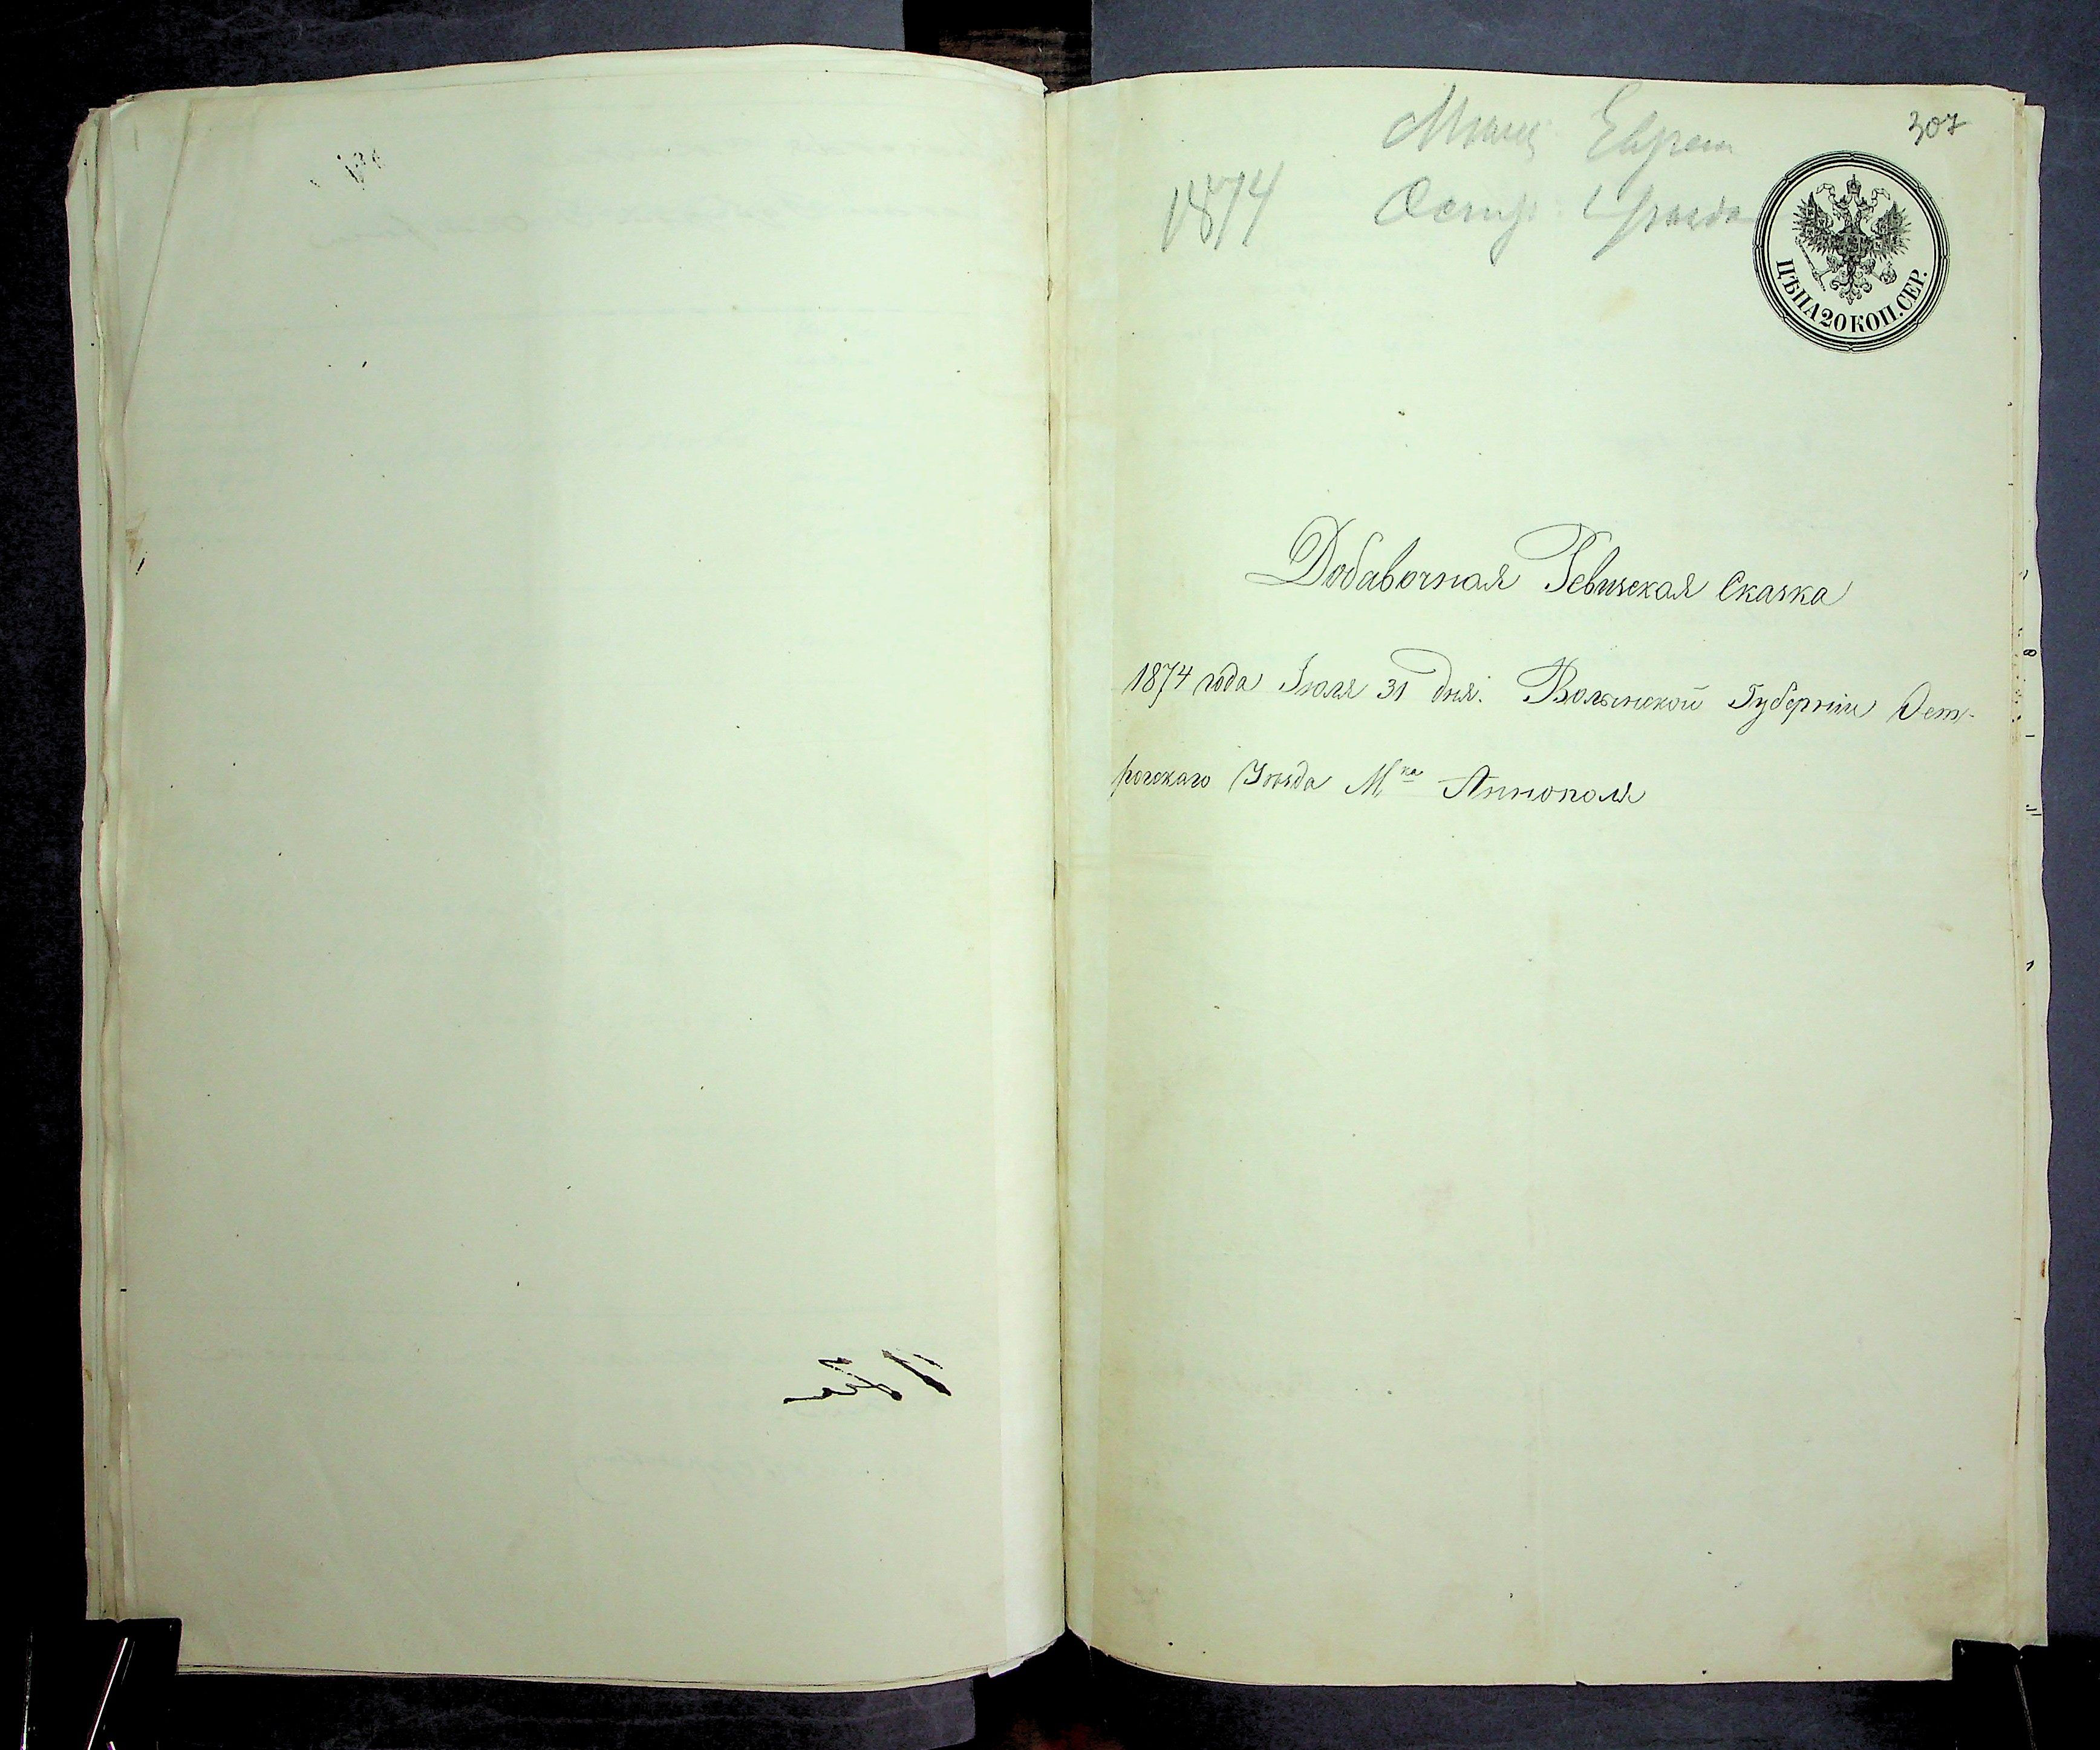 307
Мѣщ. Евреи
1874 Остр. Уѣзда
ЦѢНА 20 КОП. СЕР.
Добавочная Ревизская Сказка
1874 года Іюля 31 дня. Волынской Губерніи Ост-
рогскаго Уѣзда М<sup>ка</sup> Аннополя